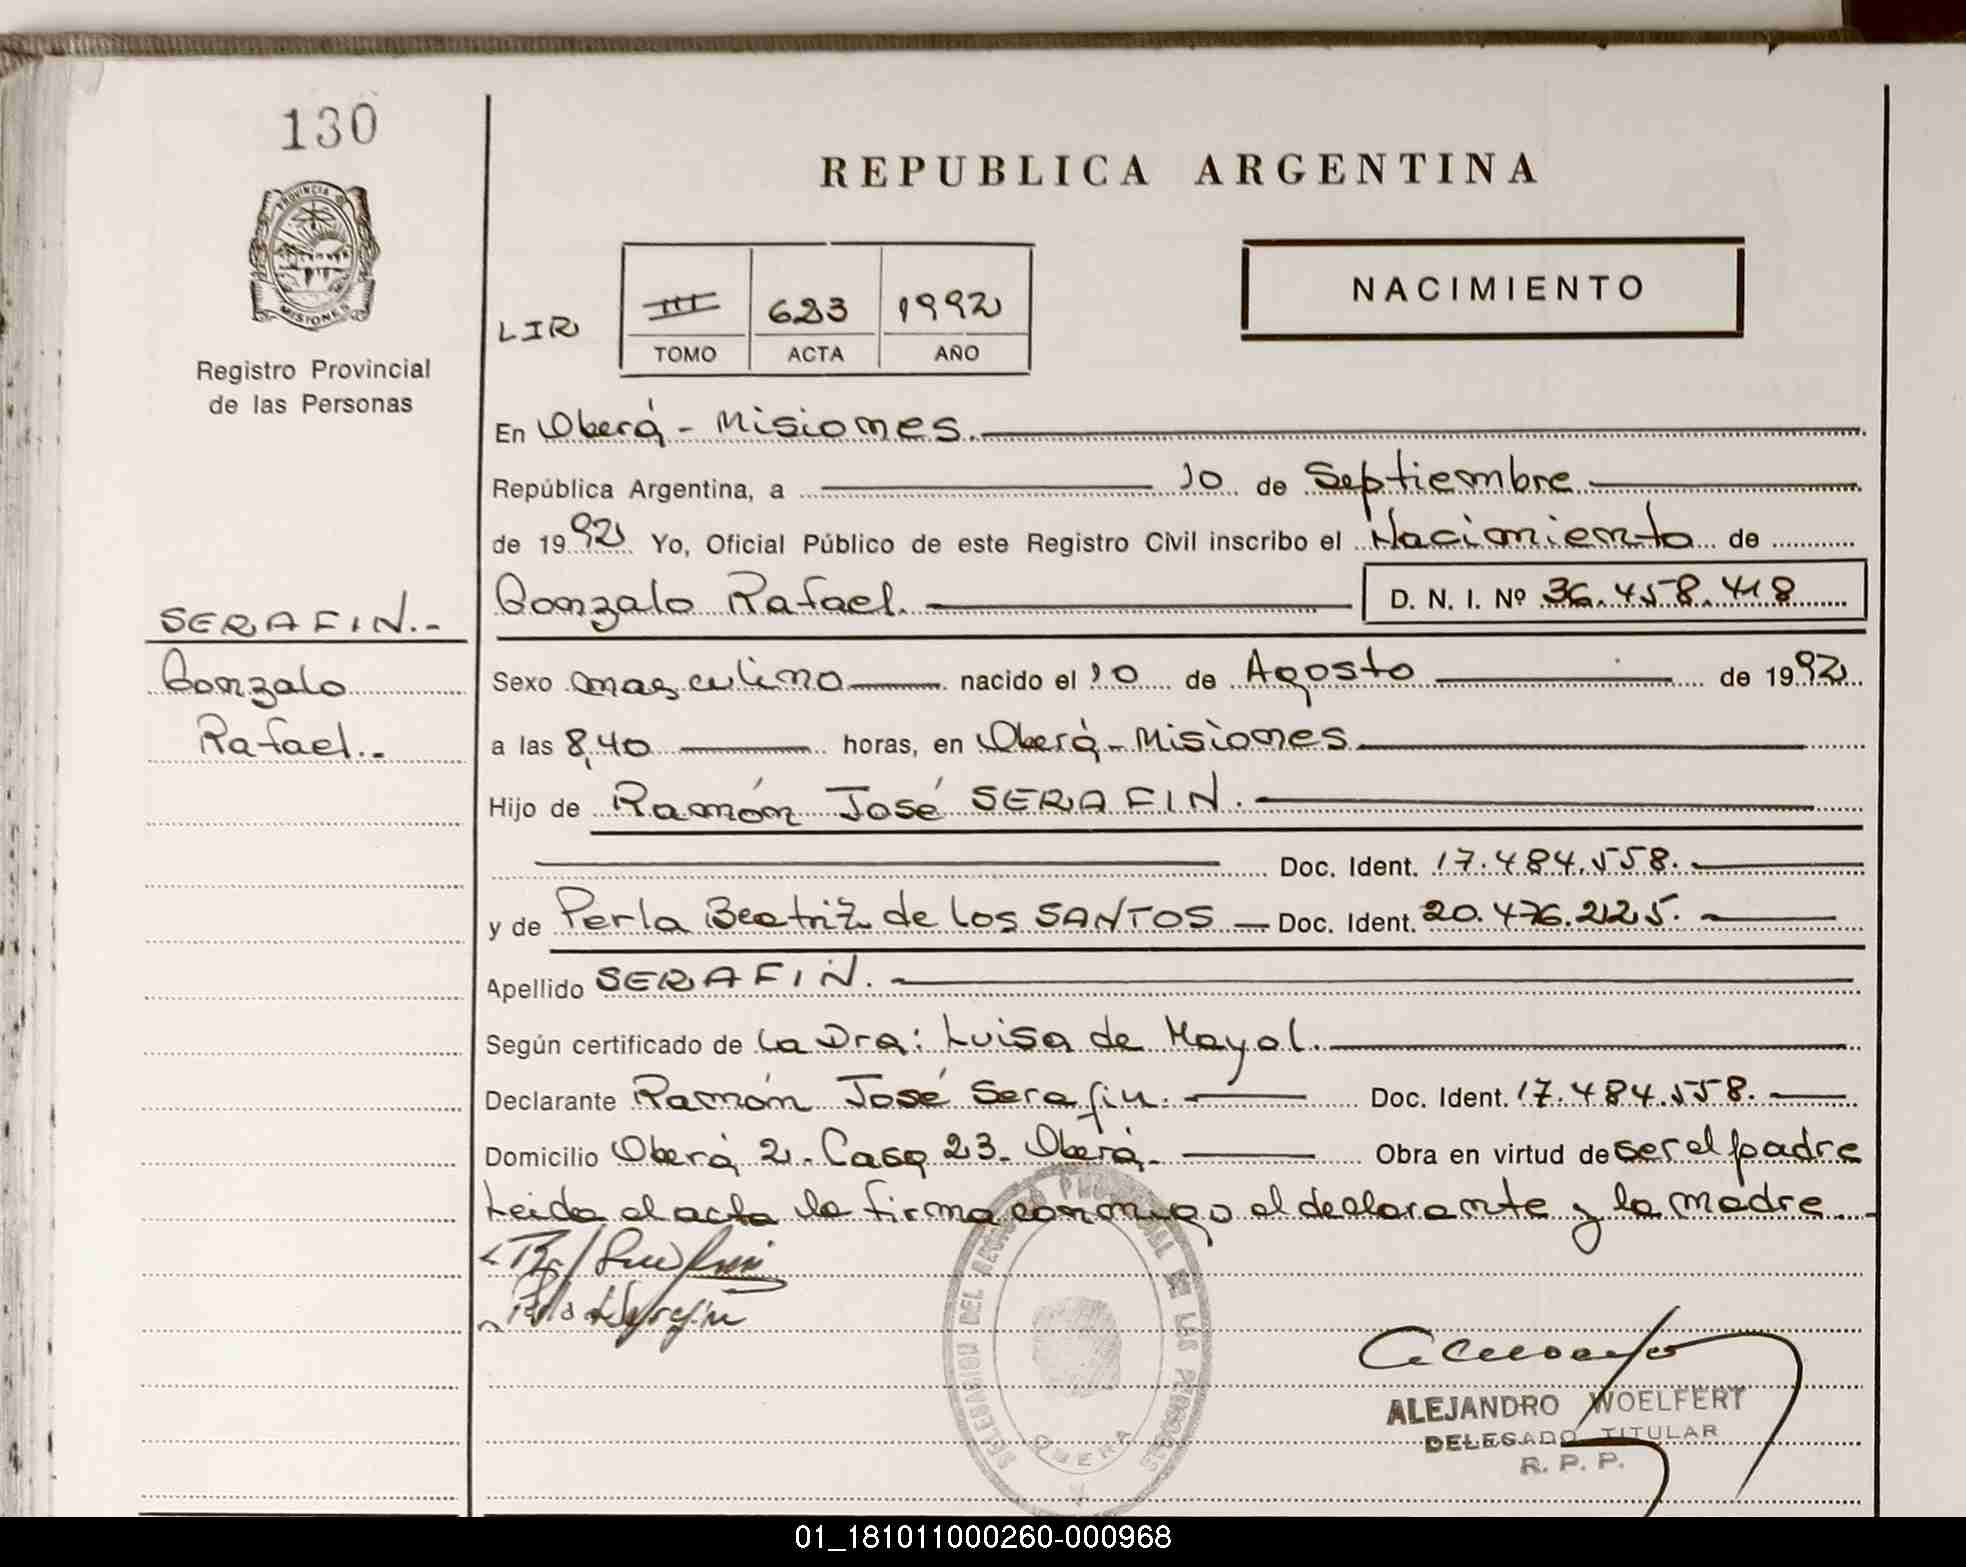 130
PROVINCIA DE
MISIONES
Registro Provincial
de las Personas
REPUBLICA ARGENTINA
NACIMIENTO
LIR
III 623 1992
TOMO ACTA AÑO
En Oberá - Misiones.
República Argentina, a 10 de Septiembre
de 1992 Yo, Oficial Público de este Registro Civil inscribo el Nacimiento de
Gonzalo Rafael. D. N. I. Nº 36.458.418
SERAFIN.-
Gonzalo
Rafael.-
Sexo masculino nacido el 10 de Agosto de 1992
a las 8,40 horas, en Oberá - Misiones
Hijo de Ramón José SERAFIN.
Doc. Ident. 17.484.558.
y de Perla Beatriz de los SANTOS - Doc. Ident. 20.476.225.
Apellido SERAFIN.
Según certificado de la Dra: Luisa de Mayol.
Declarante Ramón José Serafin. Doc. Ident. 17.484.558.
Domicilio Oberá 2. Casa 23. Oberá. Obra en virtud de ser el padre
Leida el acta la firma conmigo el declarante y la madre.
Perla de Serafin
DELEGACION DEL REGISTRO PROVINCIAL DE LAS PERSONAS
OBERA
ALEJANDRO WOELFERT
DELEGADO TITULAR
R. P. P.
01_181011000260-000968